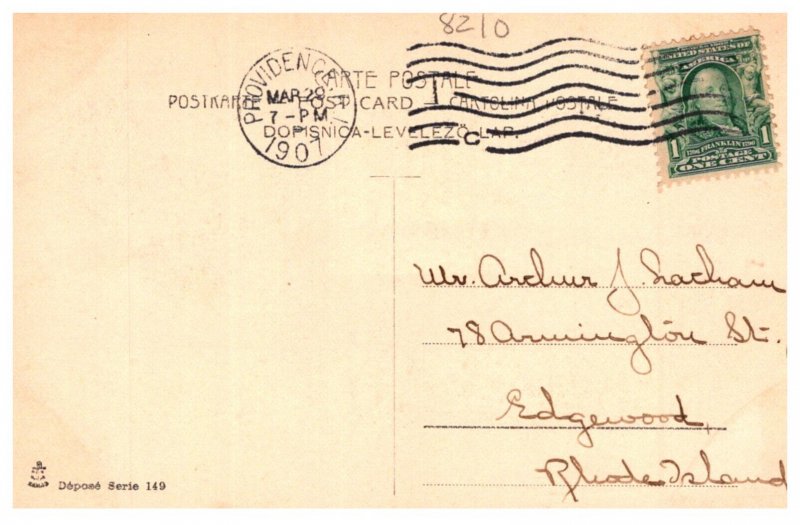 8210
CARTE POSTALE
POSTKARTE — POST CARD — CARTOLINA POSTALE
DOPISNICA-LEVELEZŐ-LAP.
PROVIDENCE, R.I.
MAR 29
7-PM
1907
C
UNITED STATES OF
AMERICA
1 1
FRANKLIN
POSTAGE
ONE CENT
Mr. Arthur J. Latham
78 Armington St.
Edgewood,
Rhode Island
Déposé Serie 149